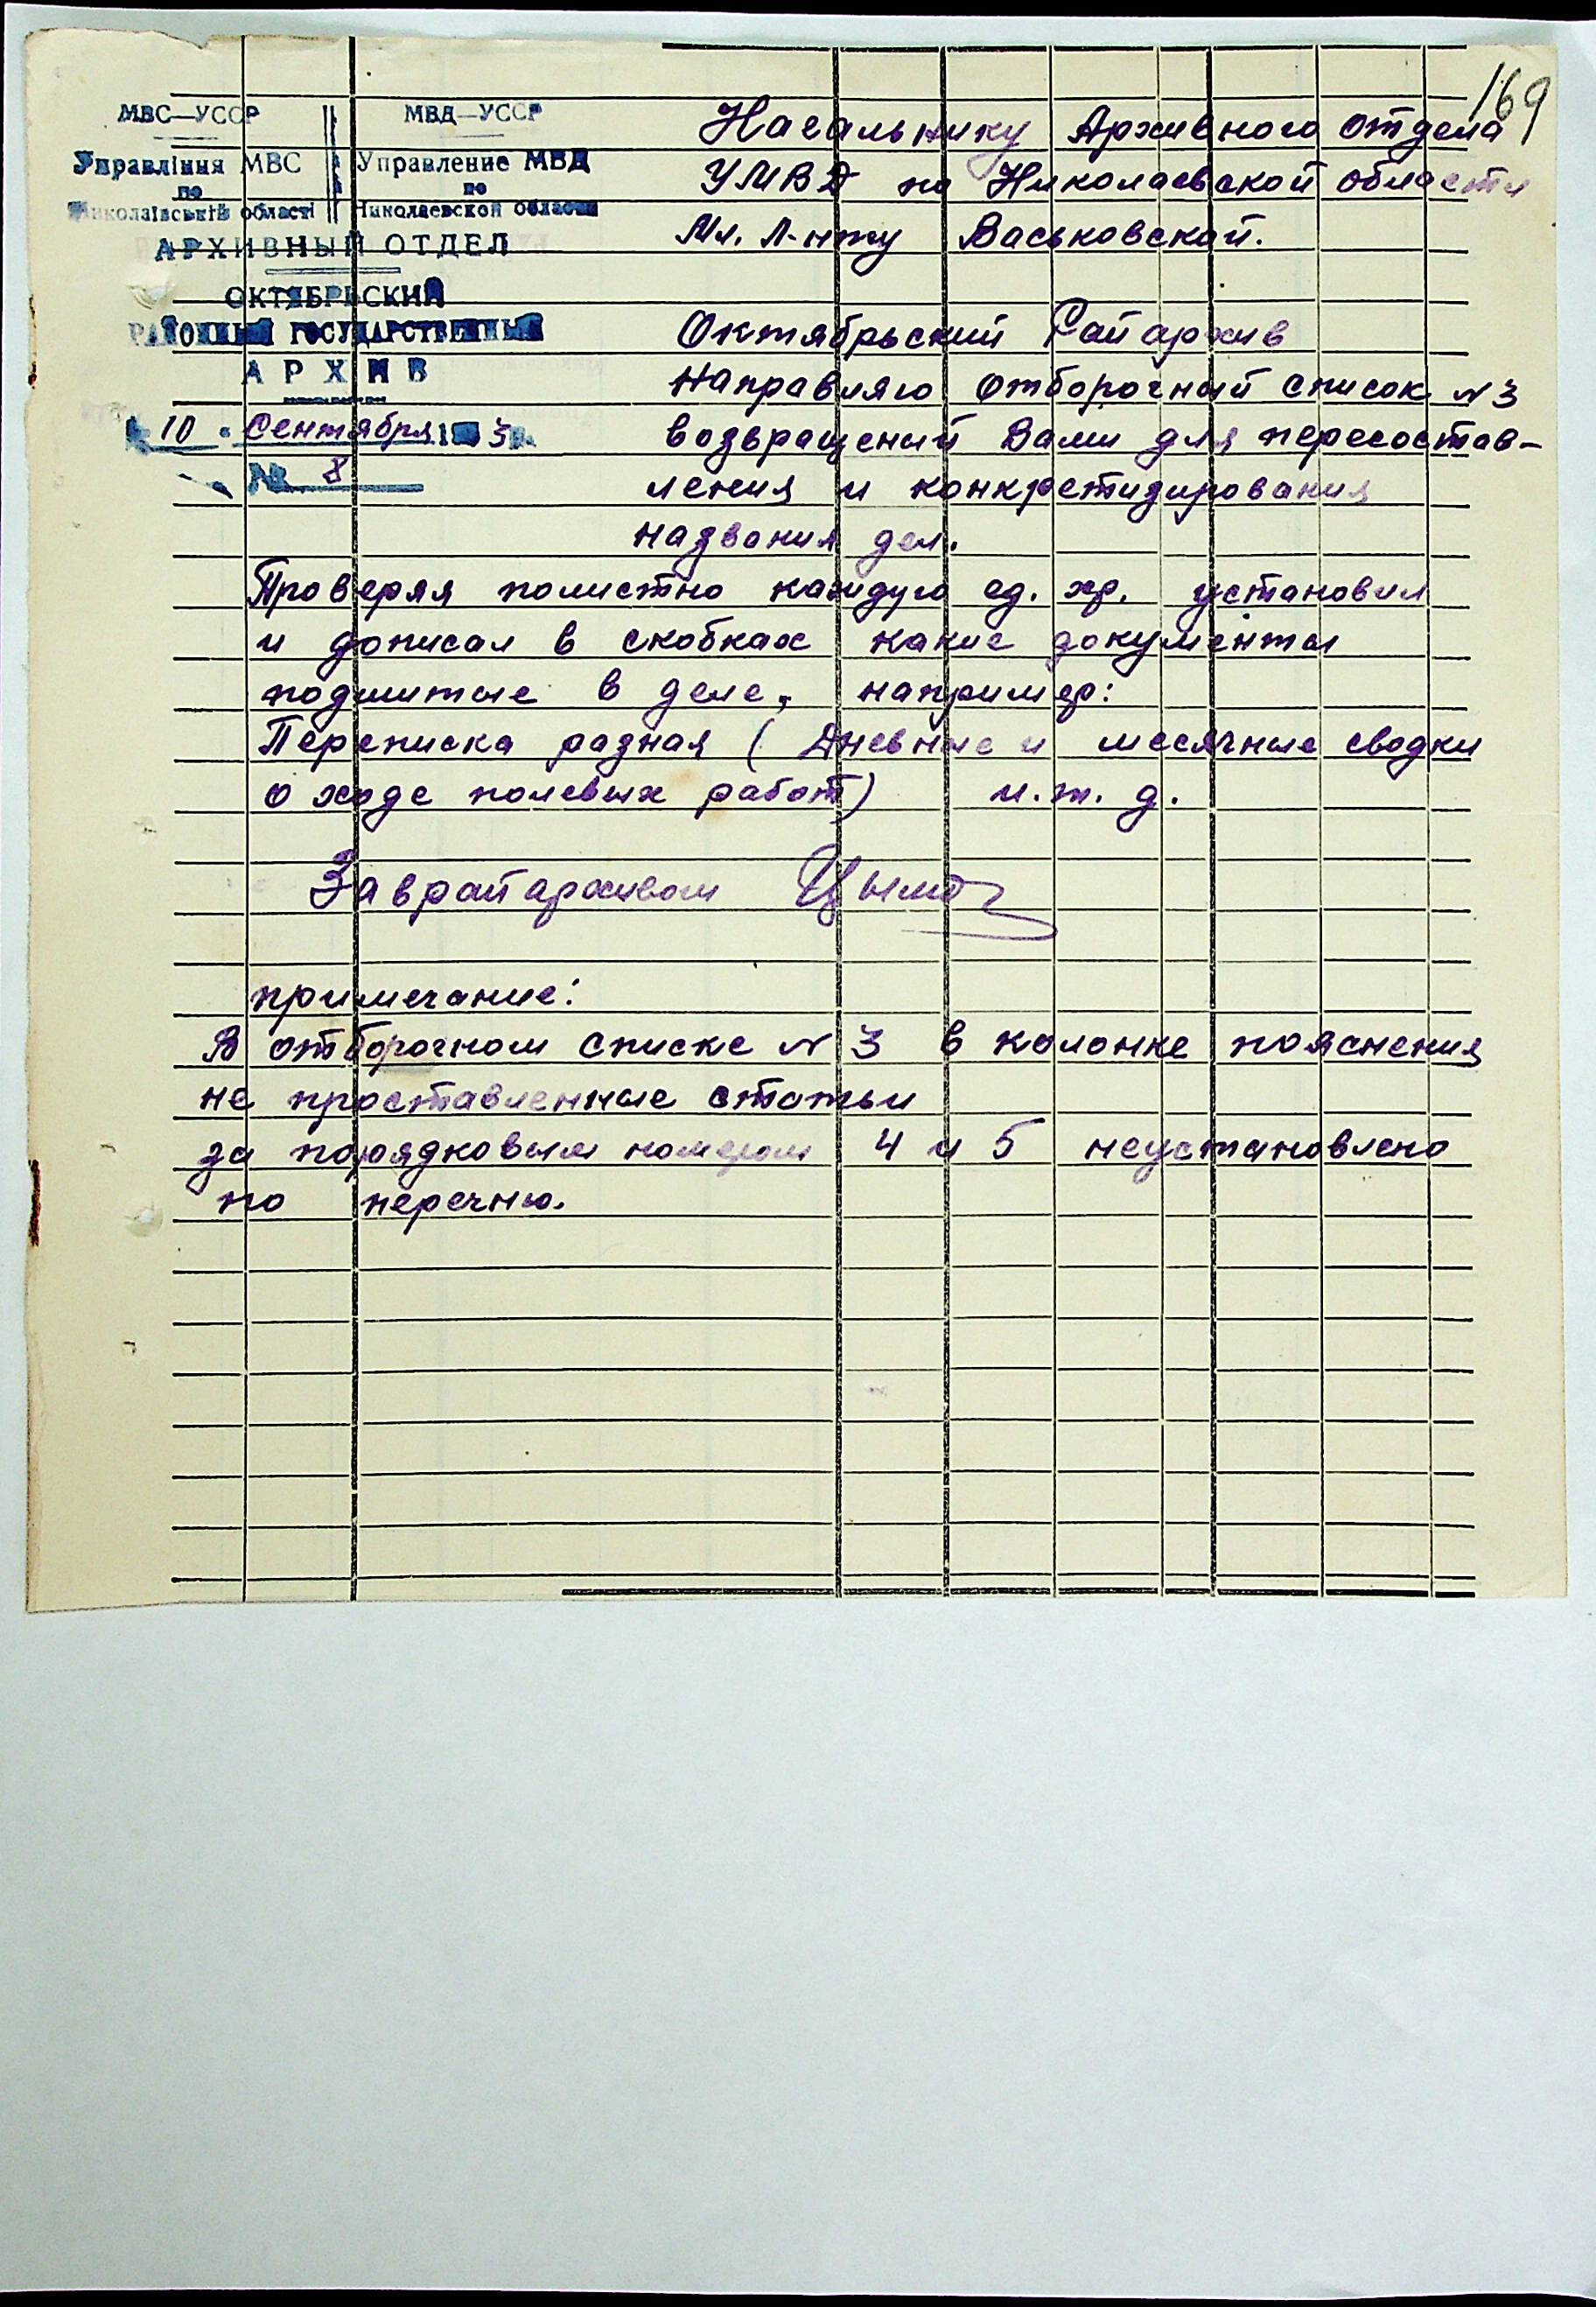 169
МВС—УССР
Управління МВС
по
Миколаївській області
МВД—УССР
Управление МВД
по
Николаевской области
АРХИВНЫЙ ОТДЕЛ
ОКТЯБРЬСКИЙ
РАЙОННЫЙ ГОСУДАРСТВЕННЫЙ
АРХИВ
10 Сентября
№ 8
Начальнику Архивного отдела
УМВД по Николаевской области
Мл. Л-нту Васьковской.
Октябрьский Райархив
Направляю отборочный список №3
возвращеный Вами для пересостав-
ления и конкретизирования
названия дел.
Проверяя полистно каждую ед. хр. установил
и дописал в скобках какие документы
подшитые в деле, например:
Переписка разная (Дневные и месячные сводки
о ходе полевых работ) и.т.д.
Заврайархивом
примечание:
В отборочном списке №3 в колонке пояснения
не проставленные статьи
за порядковым номером 4 и 5 неустановлено
по перечню.